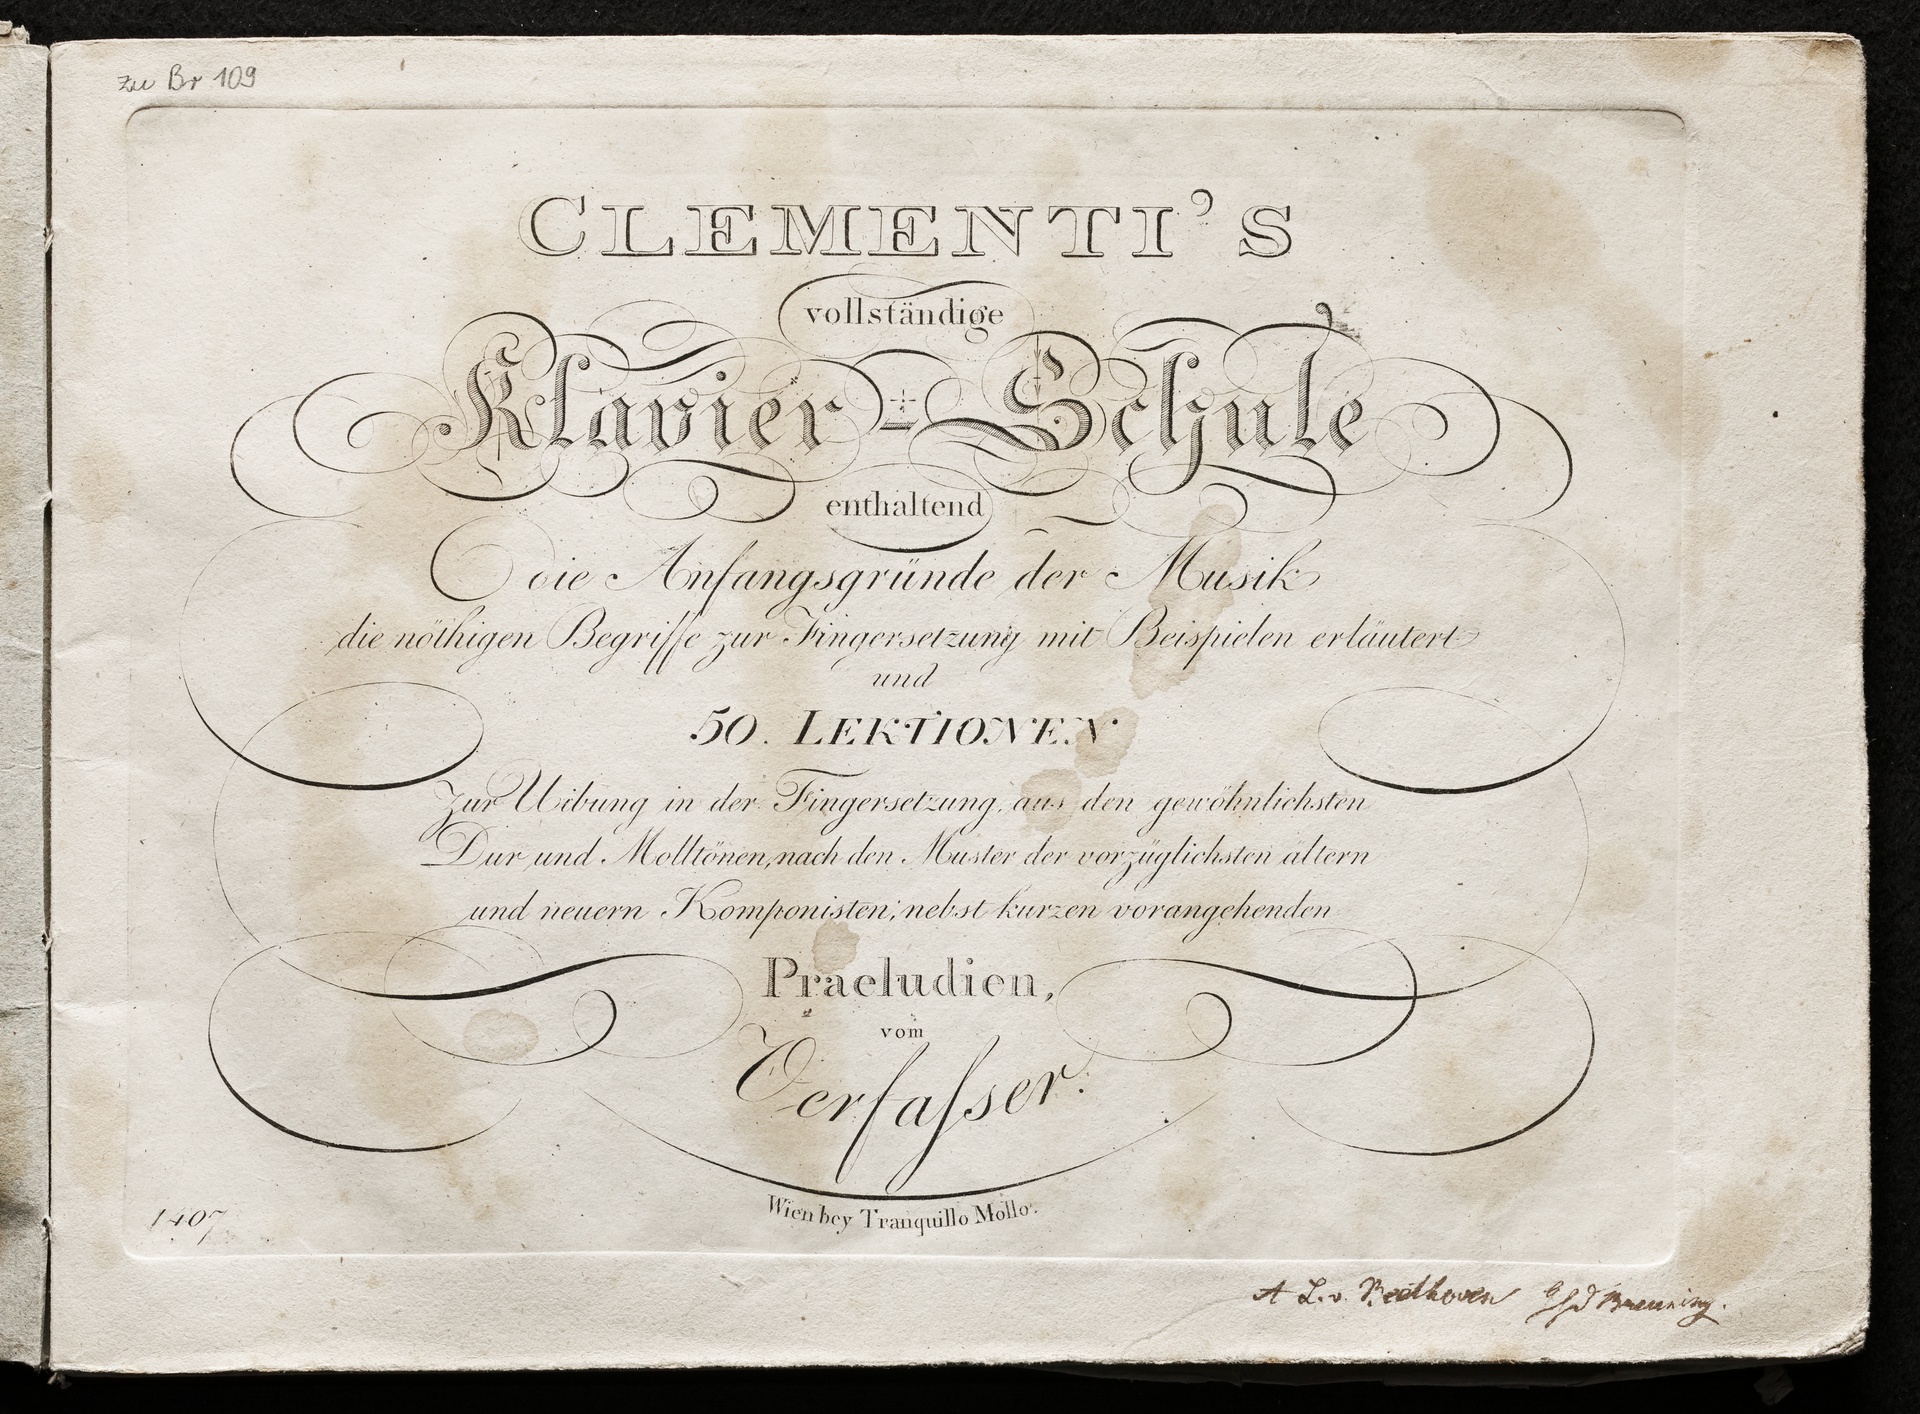 zu Br 109
CLEMENTI'S
vollständige
Klavier-Schule
enthaltend
die Anfangsgründe der Musik
die nöthigen Begriffe zur Fingersetzung mit Beispielen erläutert
und
50. LEKTIONEN
Zur Uibung in der Fingersetzung, aus den gewöhnlichsten
Dur und Molltönen, nach den Muster der vorzüglichsten ältern
und neuern Komponisten; nebst kurzen vorangehenden
Praeludien,
vom
Verfaſser.
Wien bey Tranquillo Mollo.
1407
L. v. Beethoven Breuning.